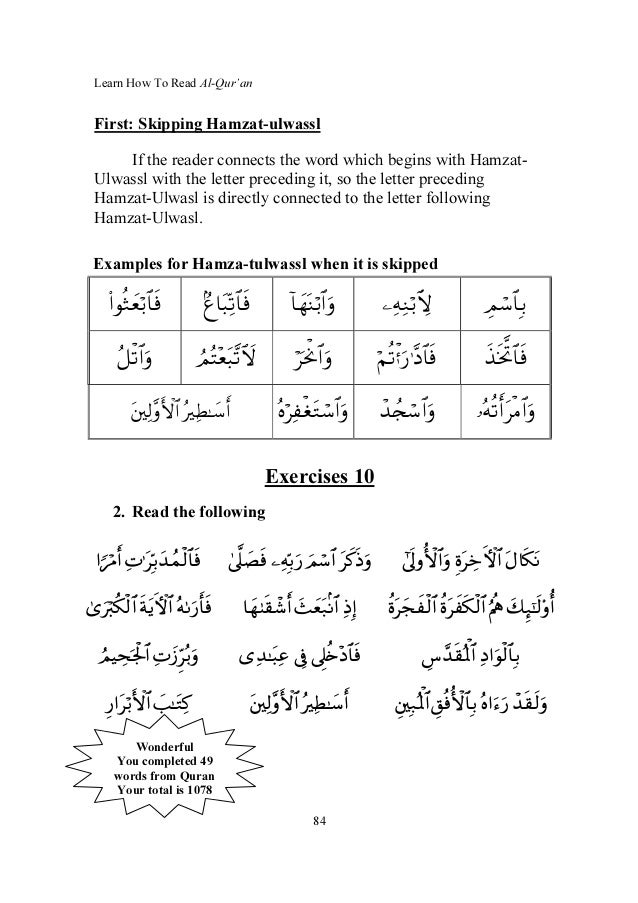 Learn How To Read Al-Qur`an
First: Skipping Hamzat-ulwassl
If the reader connects the word which begins with Hamzat-
Ulwassl with the letter preceding it, so the letter preceding
Hamzat-Ulwasl is directly connected to the letter following
Hamzat-Ulwasl.
Examples for Hamza-tulwassl when it is skipped
بِٱسْمِ لِٱبْنِهِۦ وَٱبْنَهَآ فَٱتِّبَاعٌۢ فَٱبْعَثُوا۟
فَٱتَّخَذَ فَٱدَّٰرَْٰٔتُمْ وَٱنْحَرْ لَٱتَّبَعْتُمُ وَٱتْلُ
وَٱمْرَأَتُهُۥ وَٱسْجُدْ وَٱسْتَغْفِرْهُ أَسَٰطِيرُ ٱلْأَوَّلِينَ
Exercises 10
2. Read the following
نَكَالَ ٱلْءَاخِرَةِ وَٱلْأُولَىٰٓ وَذَكَرَ ٱسْمَ رَبِّهِۦ فَصَلَّىٰ فَٱلْمُدَبِّرَٰتِ أَمْرًا
أُو۟لَٰٓئِكَ هُمُ ٱلْكَفَرَةُ ٱلْفَجَرَةُ إِذِ ٱنۢبَعَثَ أَشْقَىٰهَا فَأَرَىٰهُ ٱلْءَايَةَ ٱلْكُبْرَىٰ
بِٱلْوَادِ ٱلْمُقَدَّسِ فَٱدْخُلِى فِى عِبَٰدِى وَبُرِّزَتِ ٱلْجَحِيمُ
وَلَقَدْ رَءَاهُ بِٱلْأُفُقِ ٱلْمُبِينِ أَسَٰطِيرُ ٱلْأَوَّلِينَ كِتَٰبَ ٱلْأَبْرَارِ
Wonderful
You completed 49
words from Quran
Your total is 1078
84